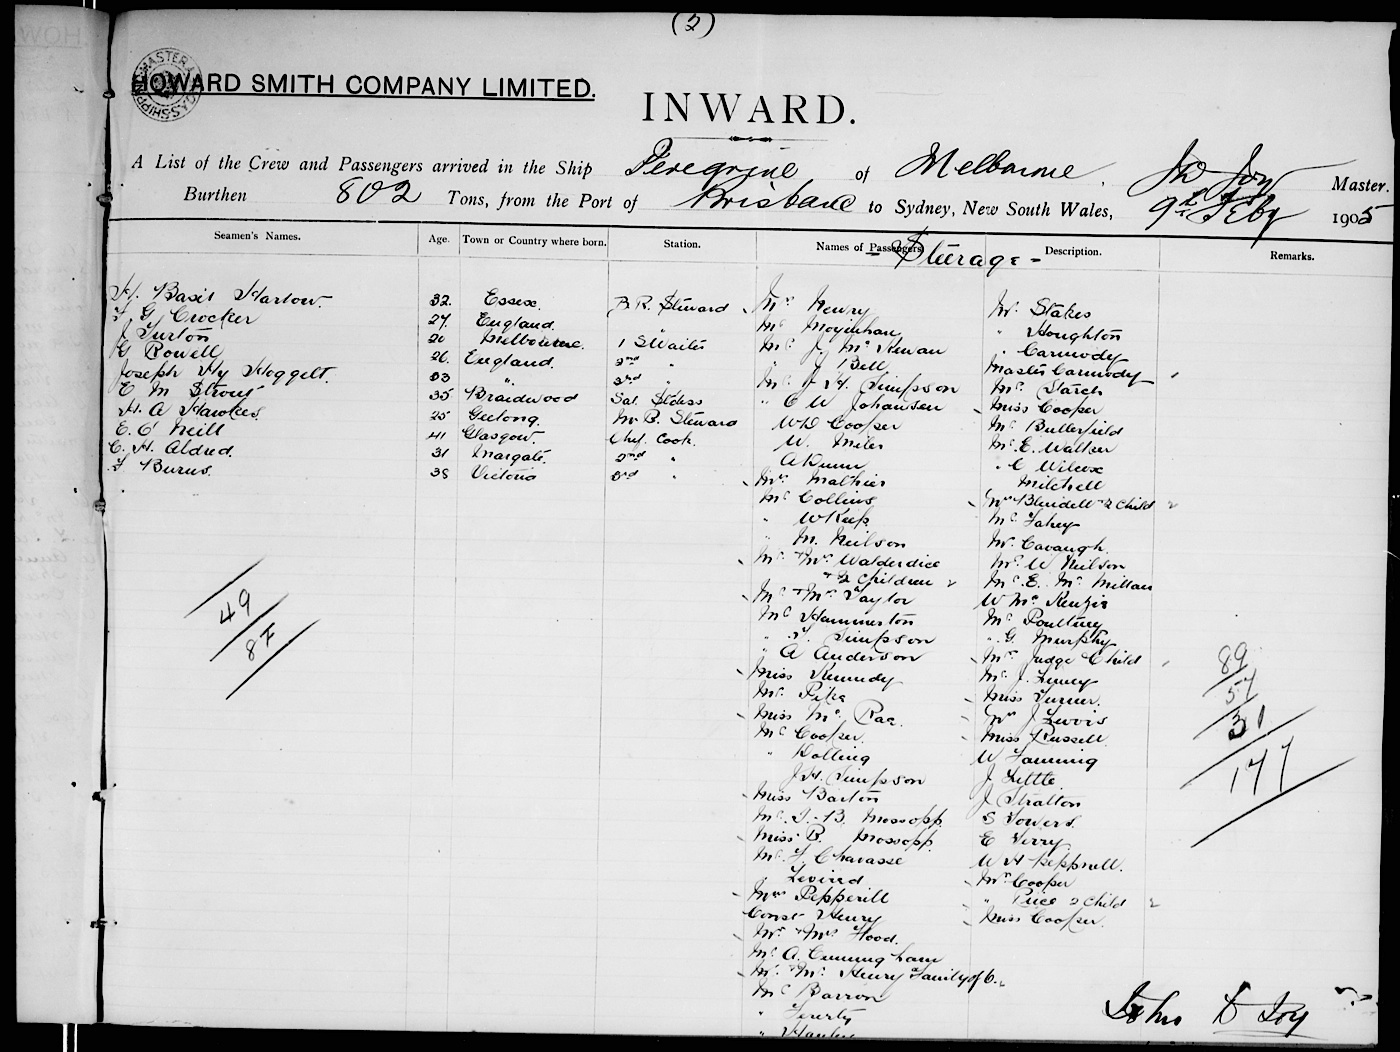 (2)
HOWARD SMITH COMPANY LIMITED.
INWARD.
A List of the Crew and Passengers arrived in the Ship Peregrine of Melbourne Jno Joy Master.
Burthen 802 Tons, from the Port of Brisbane to Sydney, New South Wales, 9th Feby 1905
Seamen's Names. Age. Town or Country where born. Station. Names of Passengers Description. Remarks.
Steerage
H. Basil Harlow 32. Essex. B. R. Steward
F G Crocker 27. England.
J Turton 20 Melbourne. 1 S Waiter
G Rowell 26. England. 2nd "
Joseph Hy Hoggett. 23 " 3rd "
E M Strout 35 Braidwood Sal. Stdess
H. A Hawkes 25 Geelong. Mr B. Steward
E. O'Neill 41 Glasgow. Chf. Cook.
C. H. Aldred. 31 Margate. 2nd "
F Burns. 38 Victoria 3rd "
Mrs Henry
Mr Moynihan
Mr J. McKewan
" J Bell
Mr J H. Simpson
" C W Johansen
W D Cooper
W. Miles
A Dunn
Mrs Mathies
Mr Collins
" W Keep
" M. Neilson
Mr & Mrs Walderdice
" & 2 Children 2
Mr & Mrs Taylor
Mr Hammerton
" H Simpson
" A Anderson
Miss Kennedy
Mr. Pike
Miss McRae.
Mr Cooper.
" Dolling
J H. Simpson
Miss Barton
Mr. T. B. Mossopp.
Miss B. Mossopp.
Mr F. Chavasse
Mrs Pepperill
Const Henry
Mr & Mrs Hood.
Mr A. Cunningham
Mr & Mrs Henry Family of 6.
Mr Barron
" Hanley
Mr. Stakes
" Houghton
" Carmody
Master Carmody
Mr. Starch
Miss Cooper
Mr Butterfield
Mr E. Walker
" C Wilcox
Mitchell
Mrs Blundell & 2 Child 2
Mr Fahey
Mr. Cavangh.
Mr W Neilson
Mr E. McMillan
W McKenzie
Mr Poultney
" G. Murphy
Mrs Judge Child
Mr. J.
Miss Turner.
Mrs J Lewis
Miss Russell.
W Fanning
J Little
J Stratton
S Towers
E Terry
W H Pepprell.
Mrs Cooper
" Price 2 Child 2
Miss Cooper.
49
87
89
57
31
177
John D Joy